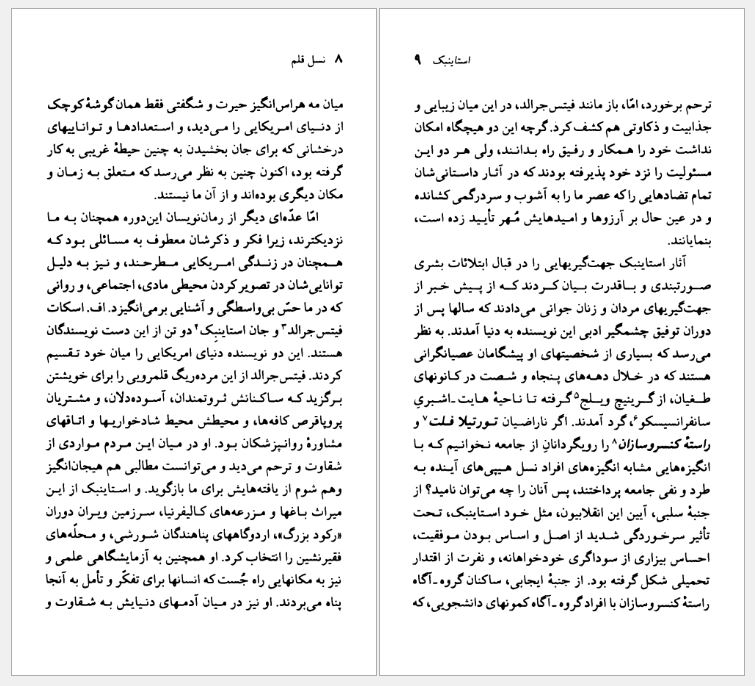 ۸ نسل قلم
میان مه هراس‌انگیز حیرت و شگفتی فقط همان گوشهٔ کوچک
از دنیای امریکایی را می‌دید، و استعدادها و تواناییهای
درخشانی که برای جان بخشیدن به چنین حیطهٔ غریبی به کار
گرفته بود، اکنون چنین به نظر می‌رسد که متعلق به زمان و
مکان دیگری بوده‌اند و از آن ما نیستند.
امّا عدّه‌ای دیگر از رمان‌نویسان این‌دوره همچنان به ما
نزدیکترند، زیرا فکر و ذکرشان معطوف به مسائلی بود که
همچنان در زندگی امریکایی مطرحند، و نیز به دلیل
توانایی‌شان در تصویر کردن محیطی مادی، اجتماعی، و روانی
که در ما حسّ بی‌واسطگی و آشنایی برمی‌انگیزد. اف. اسکات
فیتس‌جرالد۳ و جان استاینبِک۴ دو تن از این دست نویسندگان
هستند. این دو نویسنده دنیای امریکایی را میان خود تقسیم
کردند. فیتس‌جرالد از این مرده‌ریگ قلمرویی را برای خویشتن
برگزید که ساکنانش ثروتمندان، آسوده‌دلان، و مشتریان
پروپاقرص کافه‌ها، و محیطش محیط شادخواریها و اتاقهای
مشاورهٔ روانپزشکان بود. او در میان این مردم مواردی از
شقاوت و ترحم می‌دید و می‌توانست مطالبی هم هیجان‌انگیز
وهم شوم از یافته‌هایش برای ما بازگوید. و استاینبک از این
میراث باغها و مزرعه‌های کالیفرنیا، سرزمین ویران دوران
«رکود بزرگ»، اردوگاههای پناهندگان شورشی، و محلّه‌های
فقیرنشین را انتخاب کرد. او همچنین به آزمایشگاهی علمی و
نیز به مکانهایی راه جُست که انسانها برای تفکّر و تأمل به آنجا
پناه می‌بردند. او نیز در میان آدمهای دنیایش به شقاوت و
استاینبک ۹
ترحم برخورد، امّا، باز مانند فیتس‌جرالد، در این میان زیبایی و
جذابیت و ذکاوتی هم کشف کرد. گرچه این دو هیچگاه امکان
نداشت خود را همکار و رفیق راه بدانند، ولی هر دو این
مسئولیت را نزد خود پذیرفته بودند که در آثار داستانی‌شان
تمام تضادهایی را که عصر ما را به آشوب و سردرگمی کشانده
و در عین حال بر آرزوها و امیدهایش مُهر تأیید زده است،
بنمایانند.
آثار استاینبک جهت‌گیریهایی را در قبال ابتلائات بشری
صورتبندی و باقدرت بیان کردند که از پیش خبر از
جهت‌گیریهای مردان و زنان جوانی می‌دادند که سالها پس از
دوران توفیق چشمگیر ادبی این نویسنده به دنیا آمدند. به نظر
می‌رسد که بسیاری از شخصیتهای او پیشگامان عصیانگرانی
هستند که در خلال دهه‌های پنجاه و شصت در کانونهای
طغیان، از گرینیچ ویلج۵ گرفته تا ناحیهٔ هایت ـ اشبریِ
سانفرانسیسکو۶، گرد آمدند. اگر ناراضیان تورتیلا فلت۷ و
راستهٔ کنسروسازان۸ را رویگردانانِ از جامعه نخوانیم که با
انگیزه‌هایی مشابه انگیزه‌های افراد نسل هیپی‌های آینده به
طرد و نفی جامعه پرداختند، پس آنان را چه می‌توان نامید؟ از
جنبهٔ سلبی، آیین این انقلابیون، مثل خود استاینبک، تحت
تأثیر سرخوردگی شدید از اصل و اساس بودن موفقیت،
احساس بیزاری از سوداگری خودخواهانه، و نفرت از اقتدار
تحمیلی شکل گرفته بود. از جنبهٔ ایجابی، ساکنان گروه ـ آگاه
راستهٔ کنسروسازان با افراد گروه ـ آگاه کمونهای دانشجویی، که